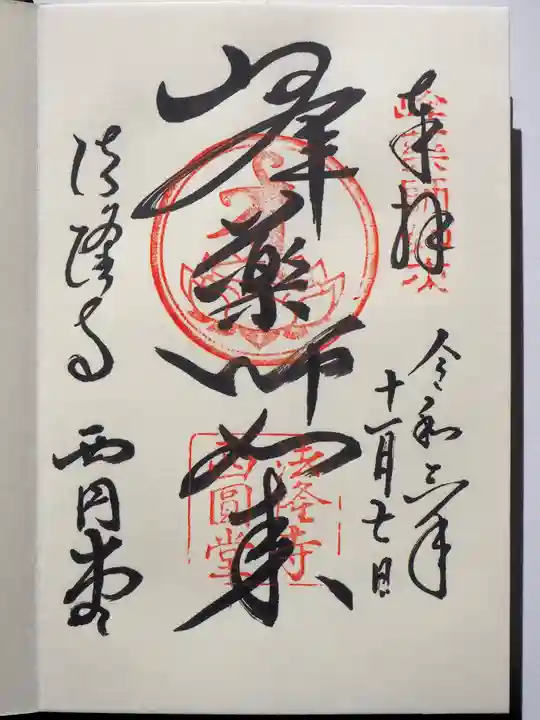 奉拝
令和三年
十一月七日
峯薬師如来
法隆寺
西圓堂
法隆寺 西円堂